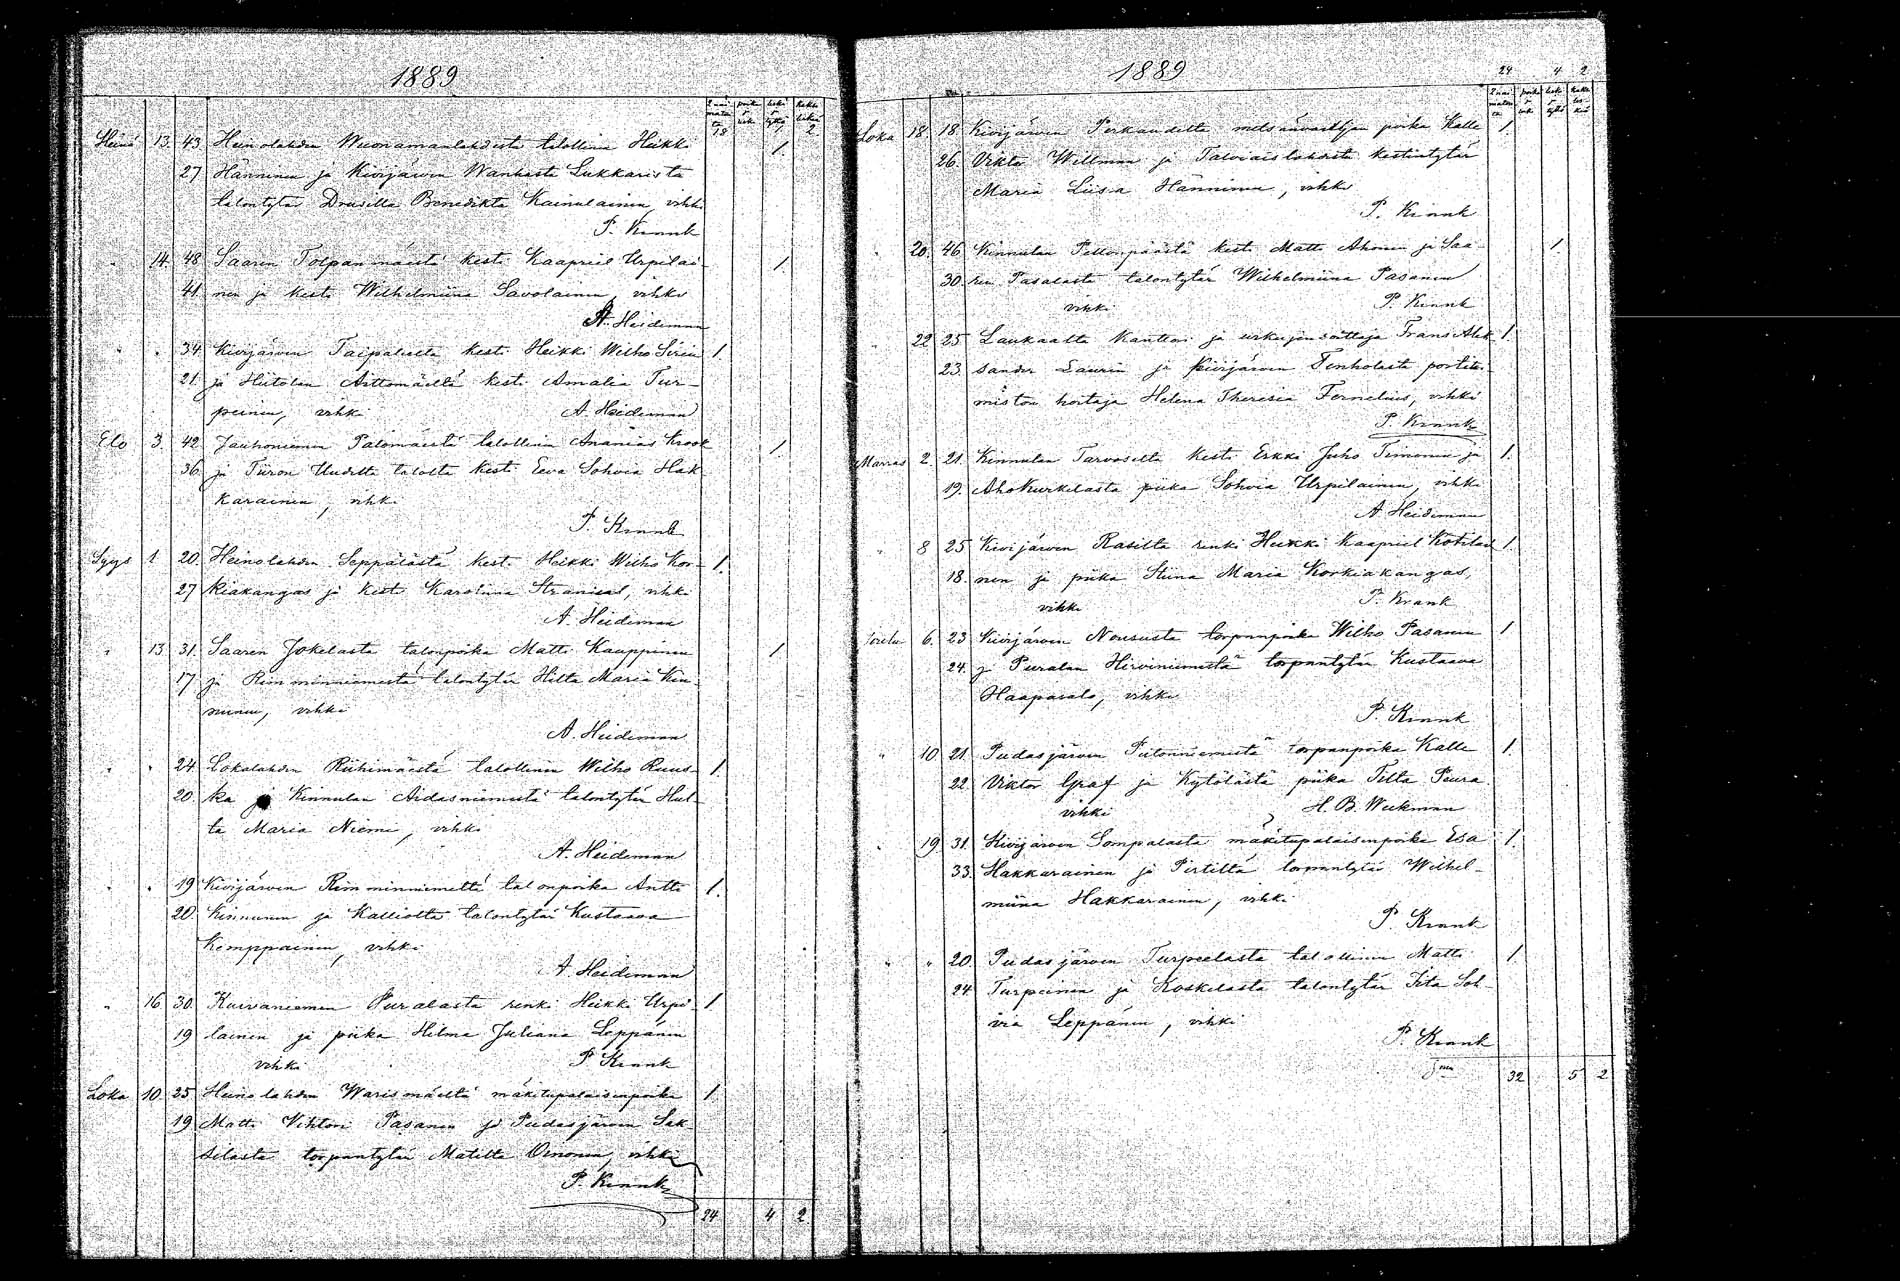 1889
2 nai mato- ta | poika & lesk | leski & tyttö | kaksi leskeä
18 1 2
Heinä 13. 43. Heinolahden Wuorimanlahdesta talollinen Heikki 1.
27 Hänninen ja Kivijärven Wanhasta Lukkarista
talontytär Drusilla Benedikta Kainulainen, vihki
P. Krank
" 14. 48. Saaren Tolpanmäestä kesti Kaapriel Urpilai- 1.
41. nen ja kesti Wilhelmiina Savolainen, vihki
A. Heideman
" " 34. Kivijärven Taipaleelta kesti Heikki Wilho Sirén 1.
21. ja Hiitolan Anttomäeltä kesti Amalia Tur-
peinen, vihki A. Heideman
Elo 3. 42. Jauhoniemen Palomäestä talollinen Ananias Krook 1.
36. ja Tiiron Uudelta talolta kesti Eeva Sohvia Hak-
karainen, vihki
P. Krank
Syys 1. 20. Heinolahden Seppälästä kesti Heikki Wilho Kor- 1.
27 kiakangas ja kesti Karoliina Stranius, vihki
A. Heideman
" 13. 31. Saaren Jokelasta talonpoika Matti Kauppinen 1
17 ja Rimminniemestä talontytär Hilta Maria Kin-
nunen, vihki
A. Heideman
" " 24. Lokolahden Riihimäestä talollinen Wilho Ruus- 1.
20. ka ja Kinnulan Aidasniemestä talontytär Hul-
ta Maria Niemi, vihki
A. Heideman
" " 19 Kivijärven Rimminniemeltä talonpoika Antti 1.
20. Kinnunen ja Kalliolta talontytär Kustaava
Kemppainen, vihki
A. Heideman
" 16. 30. Kurvaniemen Puralasta renki Heikki Urpi- 1.
19 lainen ja piika Hilma Juliana Leppänen
vihki P. Krank
Loka 10. 25. Heinolahden Warismäeltä mäkitupalaisenpoika 1.
19. Matti Vihtori Pasanen ja Pudasjärven Sak-
silasta torpantytär Matilta Oinonen, vihki
P. Krank
24 4 2
1889
24 4 2
2 nai mato- ta | poika & lesk | leski & tyttö | kaksi les- keä
Loka 18. 18. Kivijärven Perkaudelta metsänvartijan poika Kalle 1.
26. Viktor Willman ja Talviaislahdesta kestintytär
Maria Liisa Hänninen, vihki
P. Krank
" 20. 46. Kinnulan Pellonpäästä kesti Matti Ahonen ja Saa- 1.
30. ren Pasalasta talontytär Wilhelmiina Pasanen
vihki P. Krank
" 22. 25. Laukaalta kanttori ja urkujensoittaja Frans Alek- 1.
23. sander Laurén ja Kivijärven Tenholasta postitoi-
miston hoitaja Helena Theresia Fornelius, vihki
P. Krank
Marras 2. 21. Kinnulan Tarvaselta kesti Erkki Juho Timonen ja 1.
19. AhoKurkelasta piika Sohvia Urpilainen, vihki
A. Heideman
" 8 25 Kivijärven Rasilta renki Heikki Kaapriel Kotilai- 1.
18. nen ja piika Stiina Maria Korkiakangas,
vihki P. Krank
Joulu 6. 23 Kivijärven Nousусta torpanpoika Wilho Pasanen 1
24. ja Puralan Hirviniemestä torpantytär Kustaava
Haapasalo, vihki
P. Krank
" 10. 21. Pudasjärven Piitonniemestä torpanpoika Kalle 1.
22. Viktor Graf ja Kytölästä piika Tilta Peura
vihki H. B. Wekman
" 19. 31. Kivijärven Sompalasta mäkitupalaisenpoika Esa 1.
33. Hakkarainen ja Pirtiltä torpantytär Wilhel-
miina Hakkarainen, vihki
P. Krank
" " 20. Pudasjärven Turpeelasta talollinen Matti 1
24 Turpeinen ja Koskelasta talontytär Iita Soh-
via Leppänen, vihki
P. Krank
32 5 2